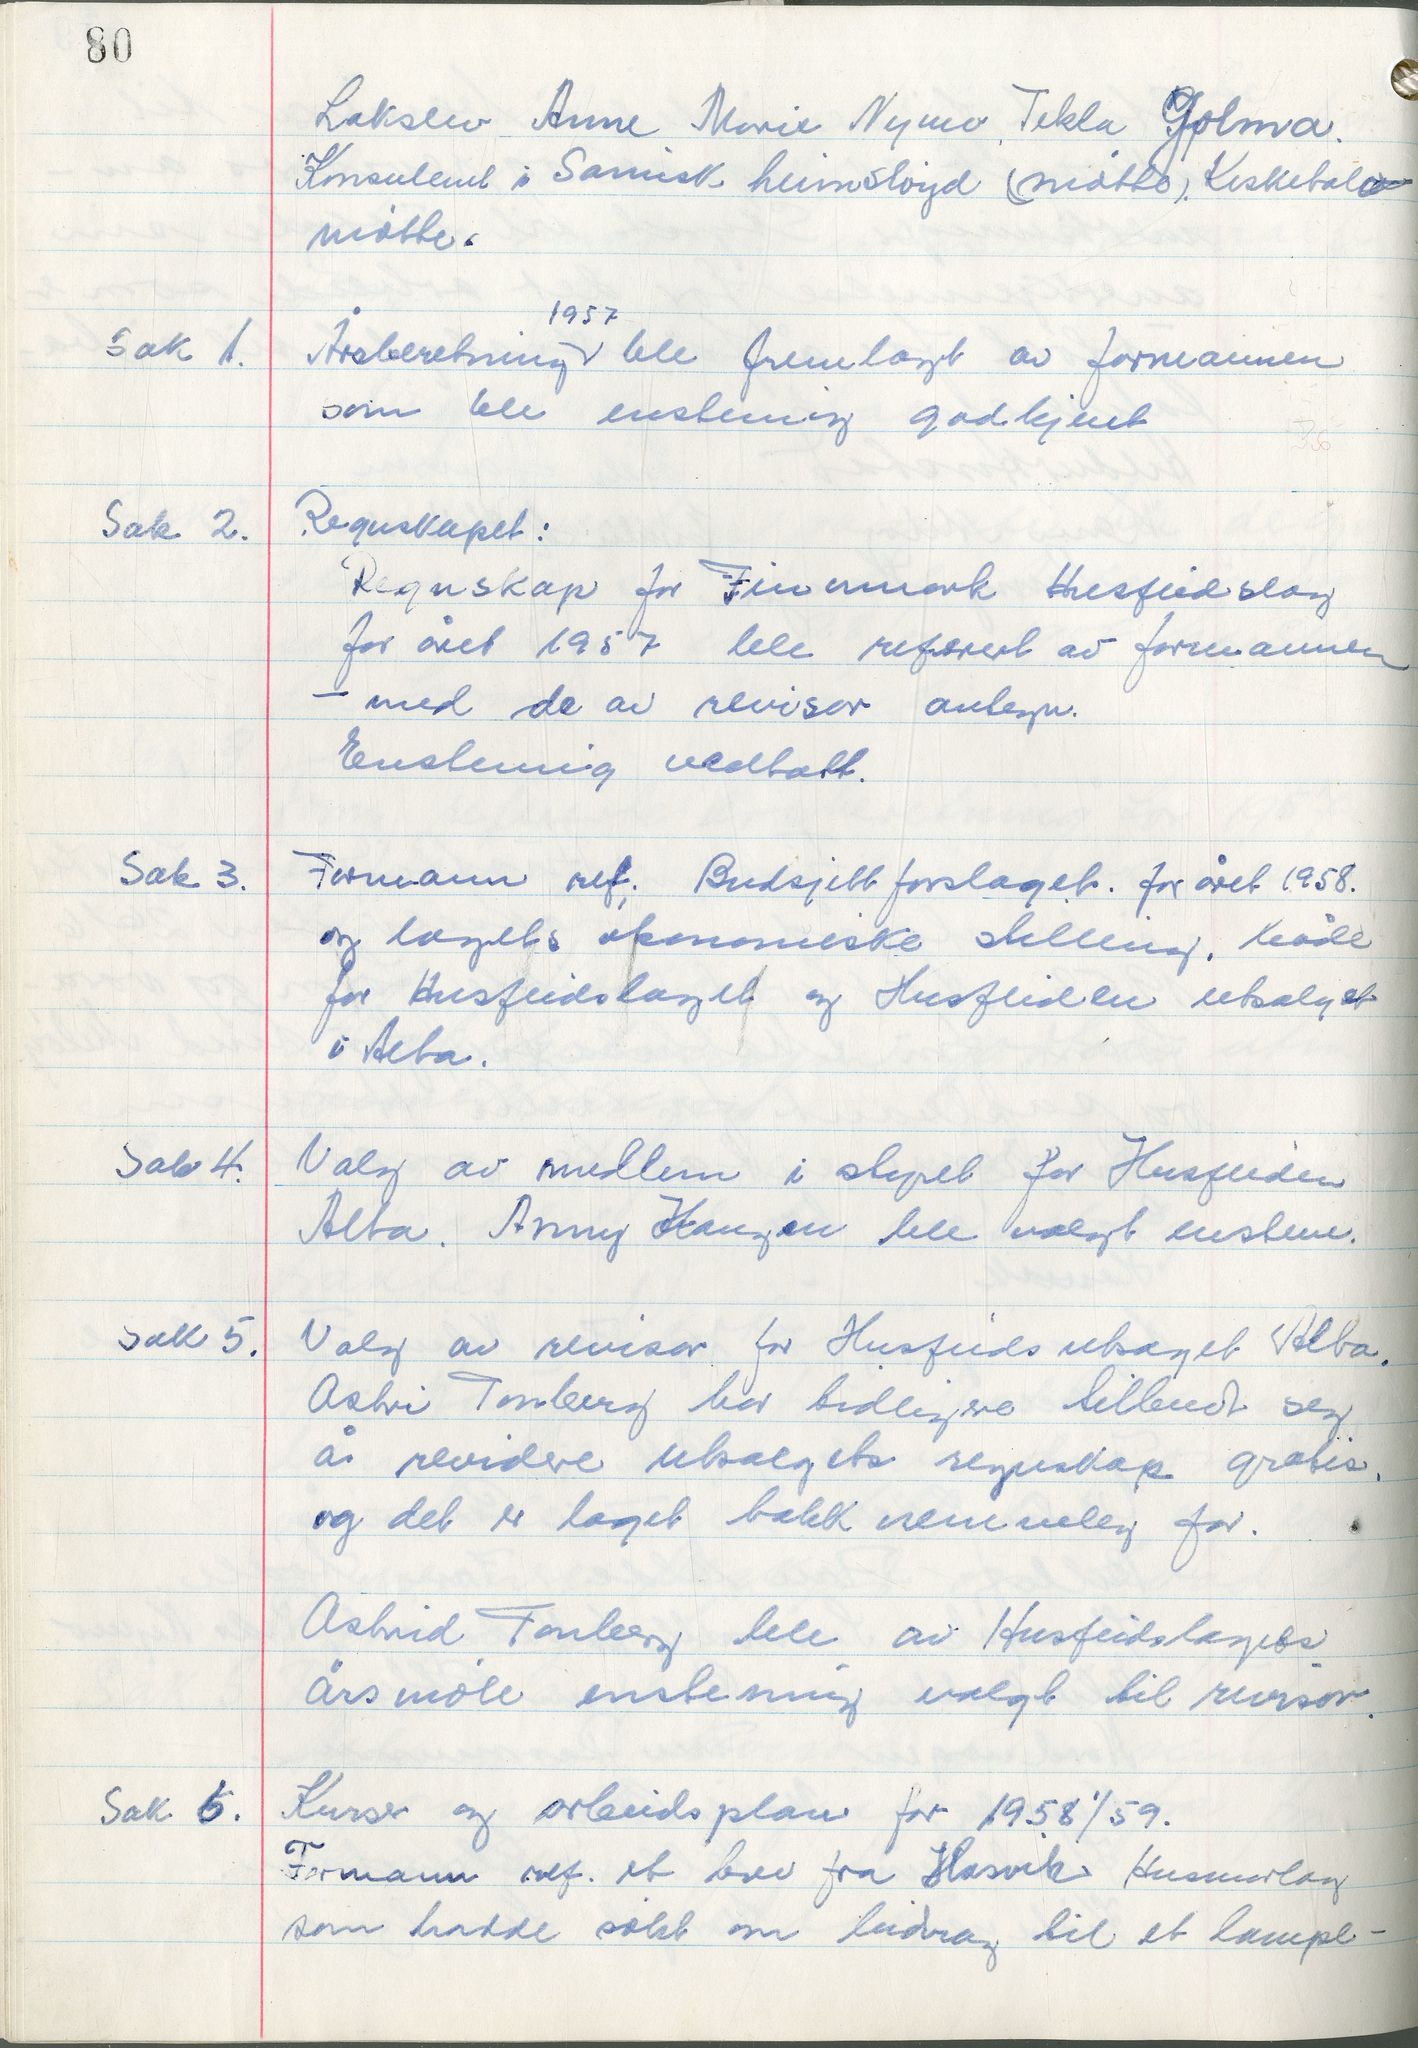 80
Lakslev Anne Marie Nymo, Tekla Golma.
Konsulent i Samisk heimsløyd (møtte).
møtte.
Sak 1. Årsberetning 1957 ble fremlagt av formannen
som ble enstemig godkjent
Sak 2. Regnskapet:
Regnskap for Finnmark Husflidslag
for året 1957 ble referert av formannen
– med de av revisor antegn.
Enstemig vedtatt.
Sak 3. Formann ref. Budsjett forslaget. for året 1958.
og lagets økonomiske stilling, både
for Husflidslaget og Husfliden utsalget
i Alta.
Sak 4. Valg av medlem i styret for Husfliden
Alta. Anny Haugen ble valgt enstem.
Sak 5. Valg av revisor for Husflids utsaget Alta.
Astri Tonberg har tidligere tilbudt seg
å revidere utsalgets regnskap gratis.
og det er laget takk nemmelig for.
Astrid Tonberg ble av Husflidslagets
årsmøte enstemig valgt til revisor.
Sak 6. Kurser og arbeidsplan for 1958/59.
Formann ref. et brev fra Hasvik Husmorlag
som hadde søkt om bidrag til et lampe-